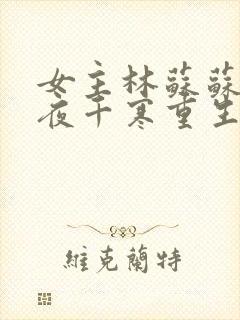 女主林蘇蘇
夜千寒重生
維克蘭特